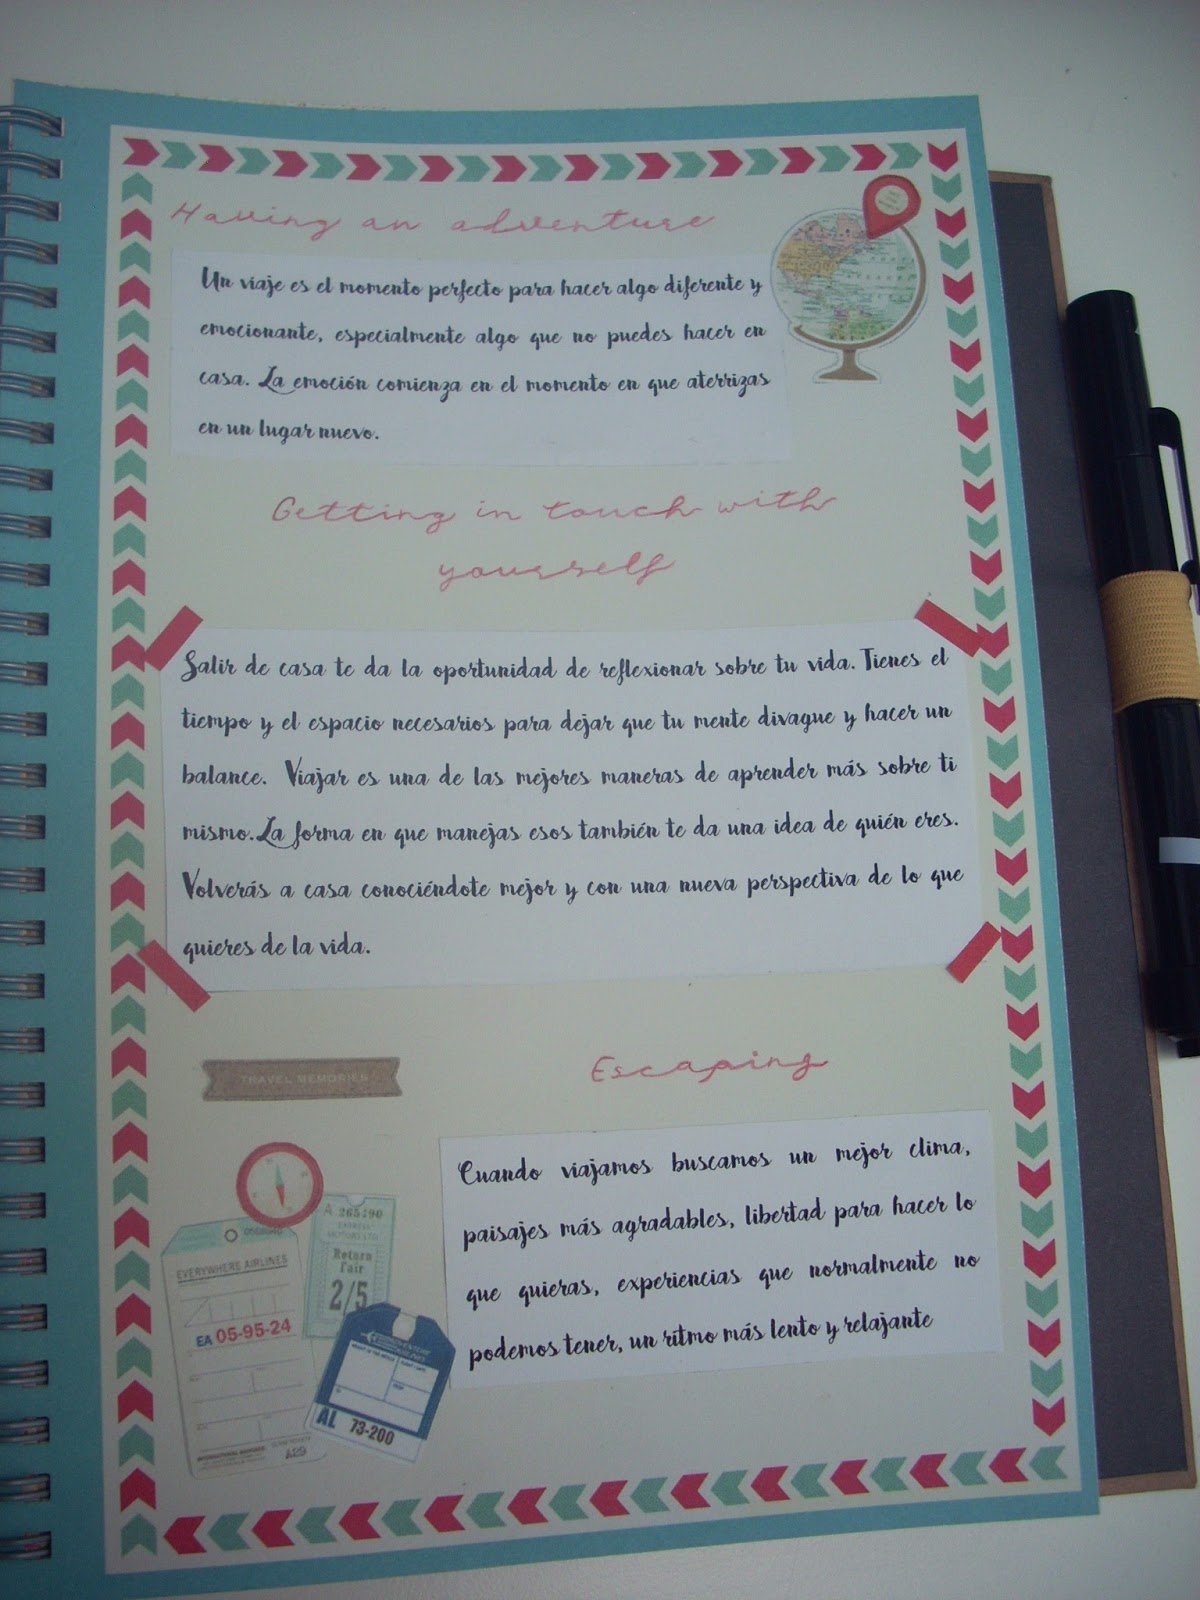 Having an adventure
Un viaje es el momento perfecto para hacer algo diferente y
emocionante, especialmente algo que no puedes hacer en
casa. La emoción comienza en el momento en que aterrizas
en un lugar nuevo.
Getting in touch with
yourself
Salir de casa te da la oportunidad de reflexionar sobre tu vida. Tienes el
tiempo y el espacio necesarios para dejar que tu mente divague y hacer un
balance. Viajar es una de las mejores maneras de aprender más sobre ti
mismo. La forma en que manejas esos también te da una idea de quién eres.
Volverás a casa conociéndote mejor y con una nueva perspectiva de lo que
quieres de la vida.
TRAVEL MEMORIES
Escaping
Cuando viajamos buscamos un mejor clima,
paisajes más agradables, libertad para hacer lo
que quieras, experiencias que normalmente no
podemos tener, un ritmo más lento y relajante
A 265190
EXPRESS
MOTORS LTD
Return
Fair
2/5
EVERYWHERE AIRLINES
EA 05-95-24
AL 73-200